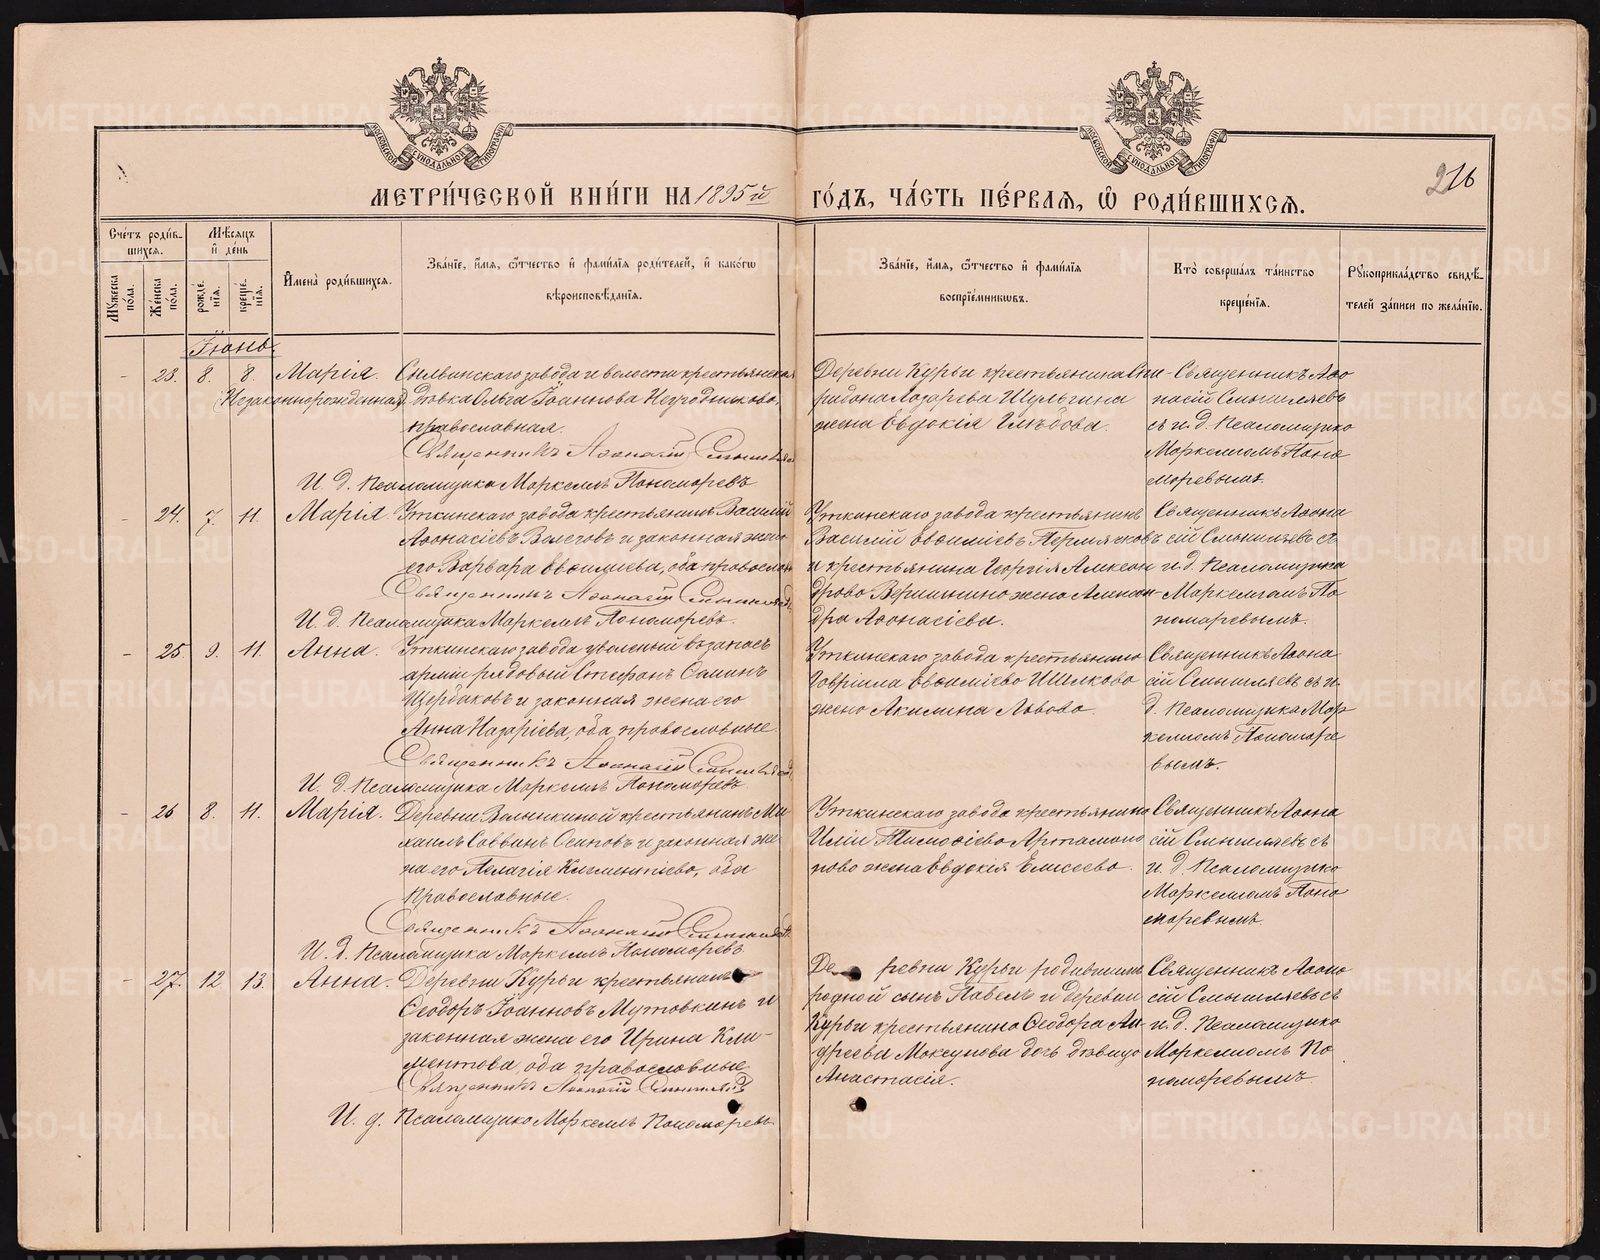 МЕТРИ́ЧЕСКОЙ КНИ́ГИ НА 1895й ГО́ДЪ, ЧА́СТЬ ПЕ́РВАЯ, Ѡ РОДИ́ВШИХСЯ.
216
Сче́тъ роди́вшихся.
Мꙋжеска по́ла.
Же́нска по́ла.
Мѣ́сяцъ и҆ де́нь
рожде́нїя.
креще́нїя.
И҆мена̀ роди́вшихся.
Зва́нїе, и҆́мя, ѻ҆́тчество и҆ фами́лїя роди́телей, и҆ како́гѡ
вѣроисповѣ́данїя.
Зва́нїе, и҆́мя, ѻ҆́тчество и҆ фами́лїя
воспрїе́мникѡвъ.
Кто̀ соверша́лъ та́инство
креще́нїя.
Рꙋкоприкла́дство свидѣ́-
телей за́писи по жела́нїю.
Іюнь.
- 23. 8. 8. Марія. Сылвинскаго завода и волости крестьянская
(Незаконнорожденная) дѣвка Ольга Іоаннова
православная.
Священникъ Аѳанасій Смышляевъ
И. д. Псаломщика Маркеллъ Пономаревъ
Деревни Курьи крестьянина
Лазарева Шульгина
жена Евдокія Глѣбова.
Священникъ Аѳа
насій Смышляевъ
съ и. д. Псаломщика
Маркелломъ Поно
маревымъ.
- 24. 7. 11. Марія Уткинскаго завода крестьянинъ Василій
Аѳанасіевъ Велеговъ и законная жена
его Варвара Евѳиміева, оба православн
Священникъ Аѳанасій Смышляевъ
И. д. Псаломщика Маркеллъ Пономаревъ.
Уткинскаго завода крестьянинъ
Василій Евѳиміевъ Пермяковъ
и крестьянина Георгія Алексан
дрова Вершинина жена Алексан-
дра Аѳанасіева.
Священникъ Аѳана
сій Смышляевъ съ
и. д. Псаломщика
Маркелломъ По
номаревымъ.
- 25. 9. 11. Анна. Уткинскаго завода уволеный въ запасъ
арміи рядовый Стефанъ
Щербаковъ и законная жена его
Анна Назаріева, оба православные
Священникъ Аѳанасій Смышляевъ
И. д. Псаломщика Маркеллъ Пономаревъ
Уткинскаго завода крестьянина
Гавріила Евѳиміева Шилкова
жена Акилина Львова.
Священникъ Аѳана
сій Смышляевъ съ и.
д. Псаломщика Мар
келломъ Пономаре
вымъ.
- 26 8. 11. Марія. Деревни Волыкиной крестьянинъ Ми
хаилъ Саввинъ Осиповъ и законная же
на его Пелагія Климентіева, оба
Православные.
Священникъ Аѳанасій Смышляевъ.
И. д. Псаломщика Маркеллъ Пономаревъ
Уткинскаго завода крестьянина
Иліи Тимоѳіева Артамоно
нова жена Евдокія Елисеева.
Священникъ Аѳана
сій Смышляевъ съ
и. д. Псаломщика
Маркелломъ Поно
маревымъ
- 27. 12 13. Анна. Деревни Курьи крестьянинъ
Ѳеодоръ Іоанновъ Мутовкинъ и
законная жена его Ирина Кли-
ментова, оба православные
Священникъ Аѳанасій Смышляевъ
И. д. Псаломщика Маркеллъ Пономаревъ
Деревни Курьи родившимъ
родной сынъ Павелъ и деревни
Курьи крестьянина Ѳеодора Ан-
дреева Моксунова дочь дѣвица
Анастасія.
Священникъ Аѳана
сій Смышляевъ съ
и. д. Псаломщика
Маркелломъ По
номаревымъ
METRIKI.GASO-URAL.RU